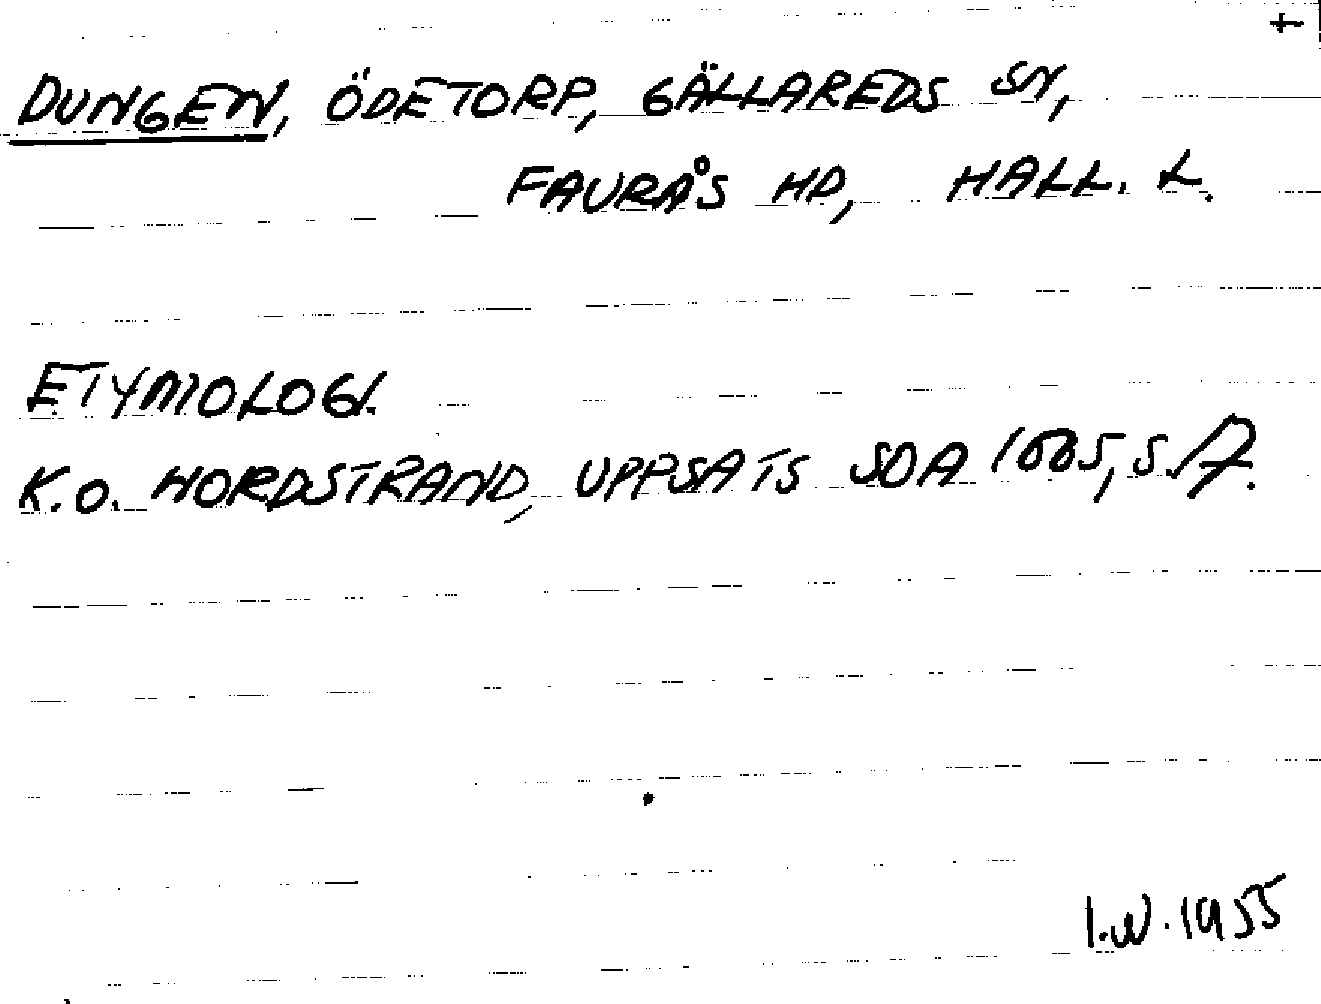 †
DUNGEN, ÖDETORP, GÄLLAREDS SN,
FAURÅS HD, HALL. L.
ETYMOLOGI.
K.O. NORDSTRAND, UPPSATS SOA 1665, S. 17.
I.W. 1955